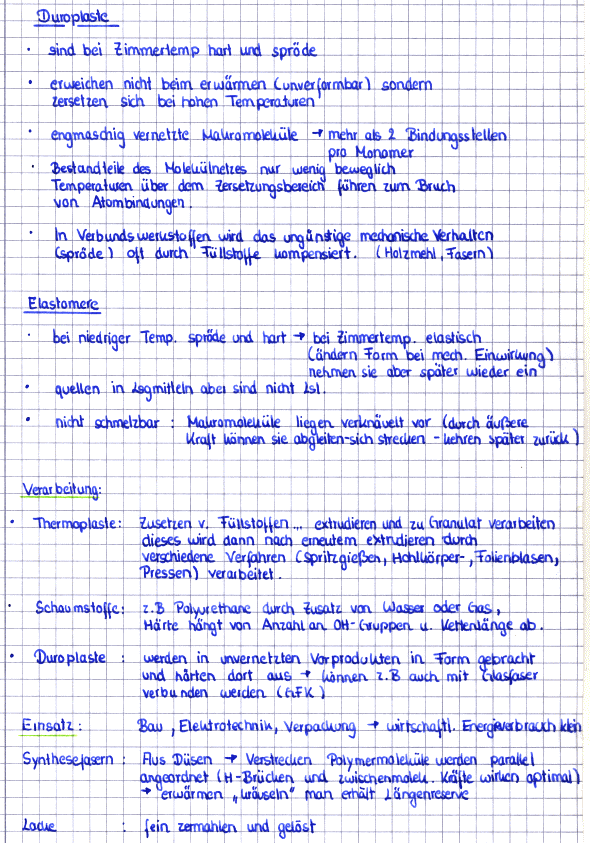 Duroplaste
· sind bei Zimmertemp hart und spröde
· erweichen nicht beim erwärmen (unverformbar) sondern
zersetzen sich bei hohen Temperaturen
· engmaschig vernetzte Makromoleküle → mehr als 2 Bindungsstellen
pro Monomer
· Bestandteile des Molekülnetzes nur wenig beweglich
Temperaturen über dem Zersetzungsbereich führen zum Bruch
von Atombindungen.
· In Verbundswerkstoffen wird das ungünstige mechanische Verhalten
(spröde) oft durch Füllstoffe kompensiert. (Holzmehl, Fasern)
Elastomere
· bei niedriger Temp. spröde und hart → bei Zimmertemp. elastisch
(ändern Form bei mech. Einwirkung)
nehmen sie aber später wieder ein
· quellen in Lsgmitteln aber sind nicht lsl.
· nicht schmelzbar : Makromoleküle liegen verknäuelt vor (durch äußere
Kraft können sie abgleiten-sich strecken - kehren später zurück)
Verarbeitung:
· Thermoplaste: Zusetzen v. Füllstoffen... extrudieren und zu Granulat verarbeiten
dieses wird dann nach erneutem extrudieren durch
verschiedene Verfahren (Spritzgießen, Hohlkörper-, Folienblasen,
Pressen) verarbeitet.
· Schaumstoffe: z.B Polyurethane durch Zusatz von Wasser oder Gas,
Härte hängt von Anzahl an OH-Gruppen u. Kettenlänge ab.
· Duroplaste : werden in unvernetzten Vorprodukten in Form gebracht
und härten dort aus → können z.B auch mit Glasfaser
verbunden werden (GFK)
Einsatz : Bau, Elektrotechnik, Verpackung → wirtschaftl. Energieverbrauch klein
Synthesefasern : Aus Düsen → Verstrecken Polymermoleküle werden parallel
angeordnet (H-Brücken und zwischenmolek. Kräfte wirken optimal)
→ erwärmen „kräuseln" man erhält Längenreserve
Lacke : fein zermahlen und gelöst